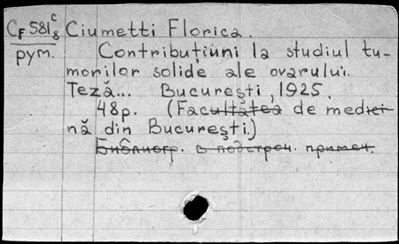 CF 581 c/8 Ciumetti Florica.
рум. Contribuţiuni la studiul tu-
morilor solide ale ovarului.
Teză... Bucureşti, 1925.
48p. (Facultatea de medici-
nă din Bucureşti.)
Библиогр. в подстроч. примеч.